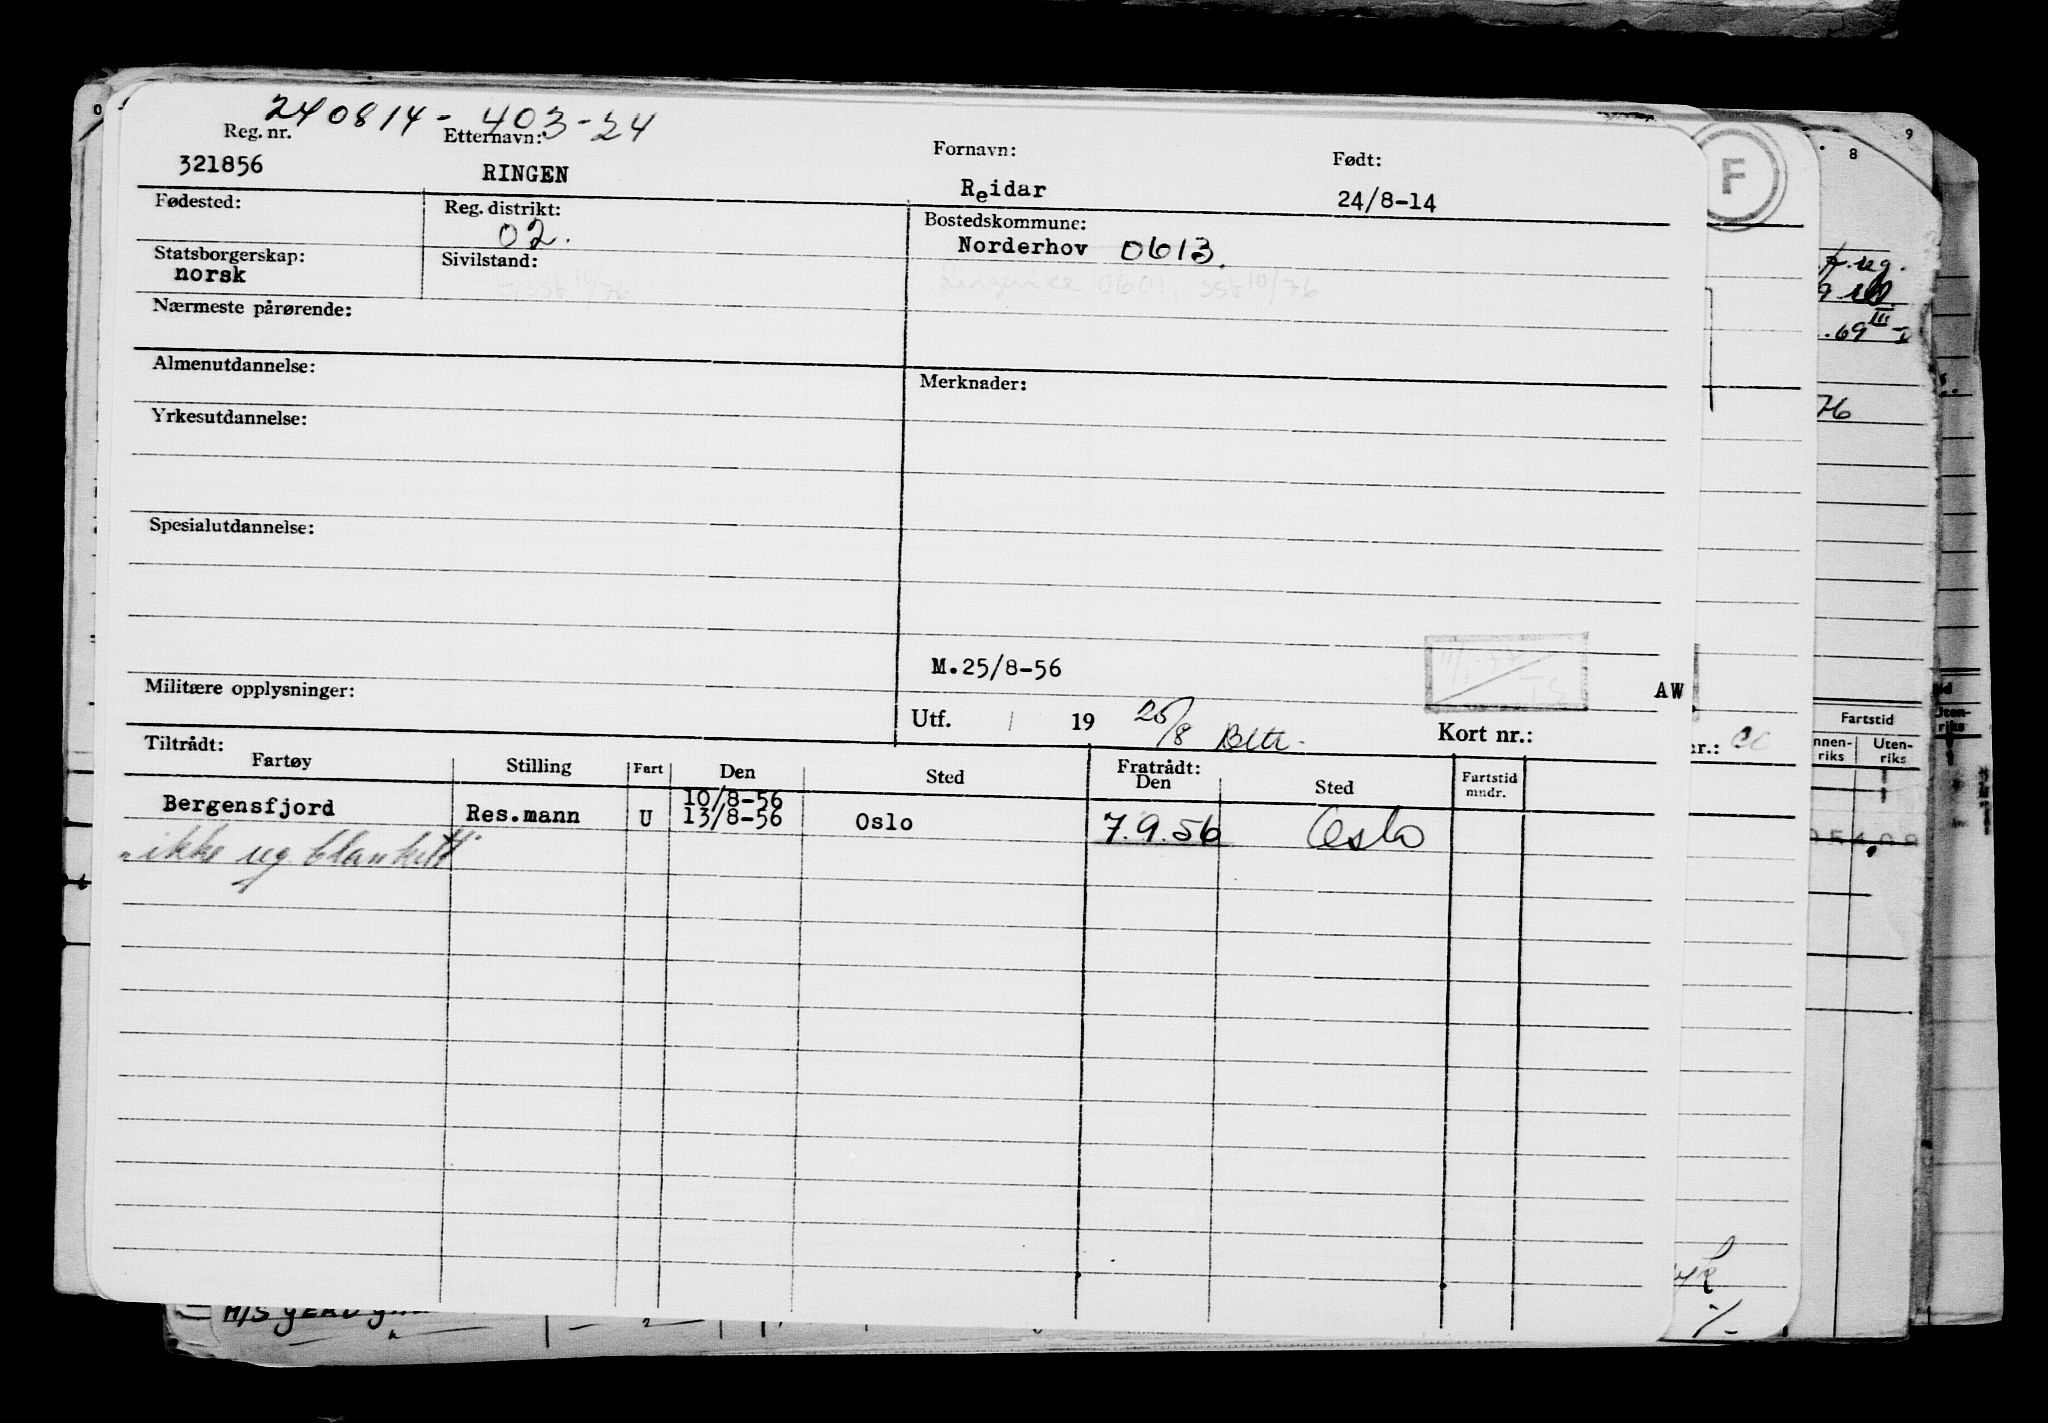 240814-403-24
Reg. nr. Etternavn: Fornavn: Født:
321856 RINGEN Reidar 24/8-14
Fødested: Reg. distrikt: Bostedskommune:
02. Norderhov 0613.
Statsborgerskap: Sivilstand:
norsk
0601, 10/76
Nærmeste pårørende:
Almenutdannelse: Merknader:
Yrkesutdannelse:
Spesialutdannelse:
M.25/8-56
AW
Militære opplysninger:
Utf. / 19 25/8 Kort nr.:
Tiltrådt: Fratrådt:
Fartøy Stilling Fart Den Sted Den Sted Fartstid mndr.
10/8-56
Bergensfjord Res.mann U 13/8-56 Oslo 7.9.56 Oslo
ikke reg blankett
F
8
9
76
Fartstid
nnen- Uten-
riks riks
nr.:
M/S